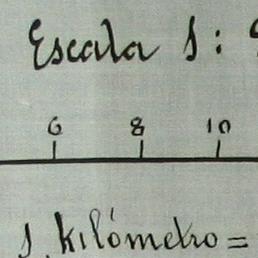 Escala 1:
6 8 10
1 kilómetro =